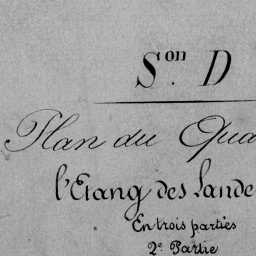 Son. D
Plan du Qua
l'Etang des Lande
En trois parties
2e Partie